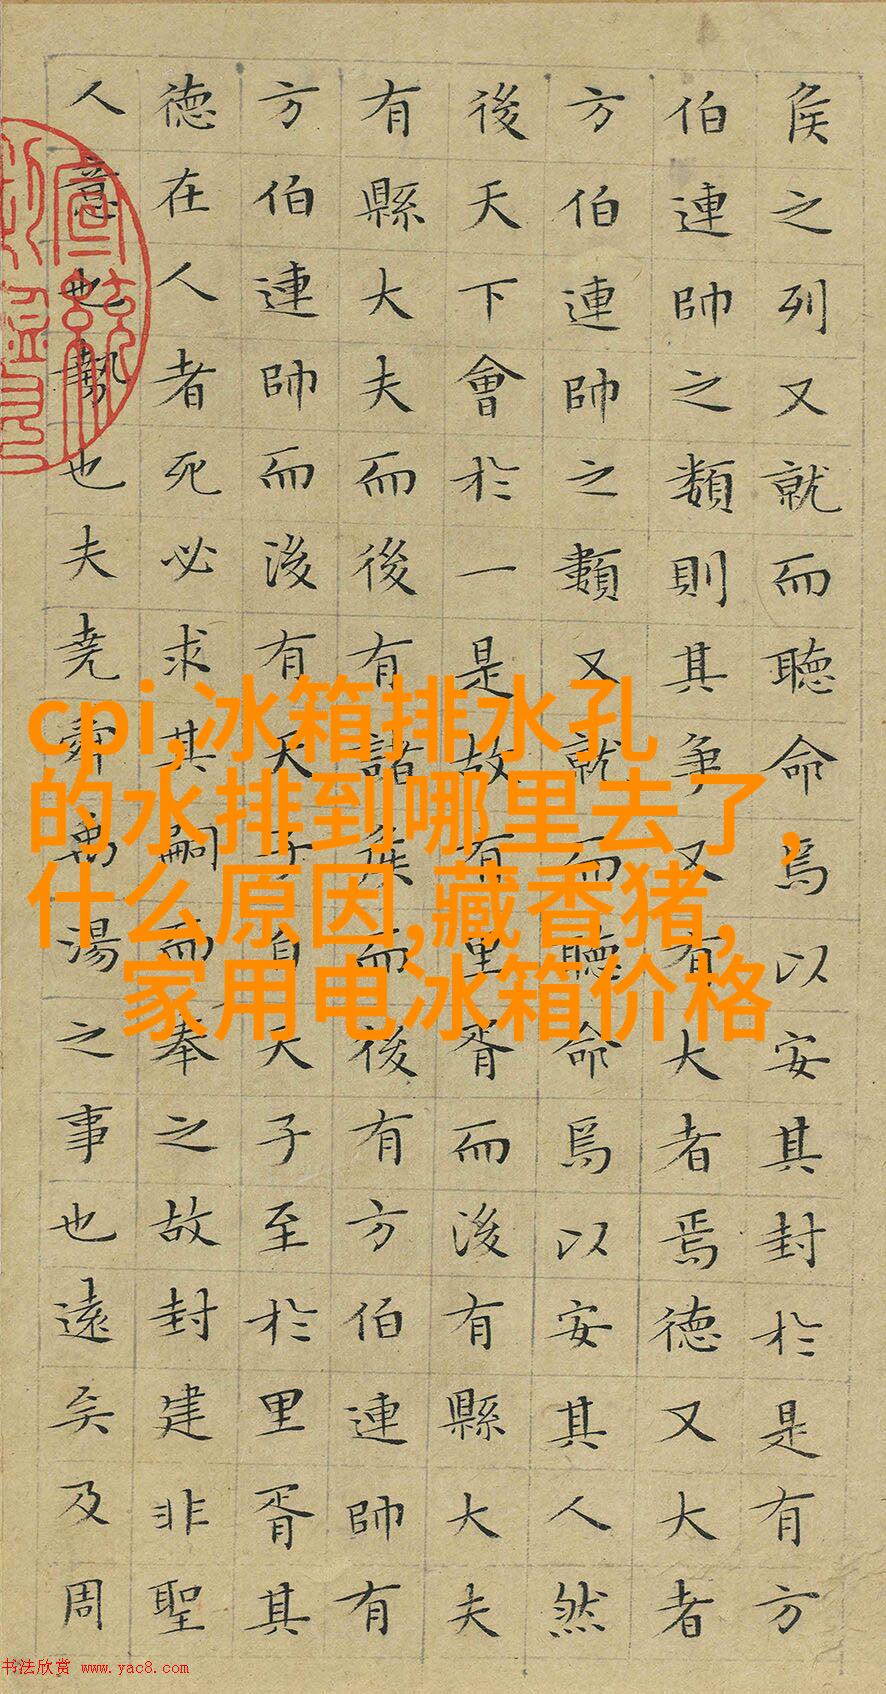 侯之列又就而聽命焉以安其封於是有方
伯連帥之類則其争又有大者焉德又大者
方伯連帥之類又就而聽命焉以安其人然
後天下會於一是故有里胥而後有縣大夫
有縣大夫而後有諸侯而後有方伯連帥有
方伯連帥而後有天子自天子至於里胥其
德在人者死必求其嗣而奉之故封建非聖
人意也勢也夫堯舜禹湯之事也遠矣及周
cpi,冰箱排水孔
的水排到哪里去了,
什么原因,藏香猪,
家用电冰箱价格
书法欣赏 www.yac8.com